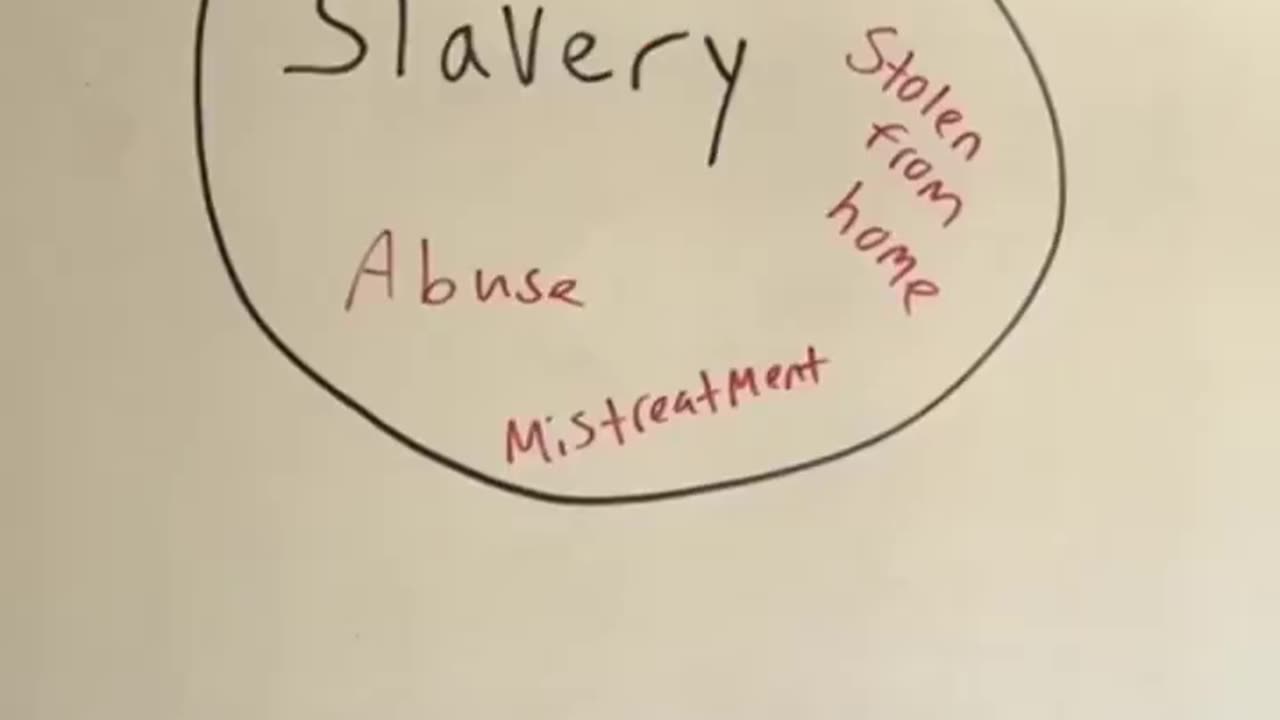 Slavery
Stolen
from
home
Abuse
Mistreatment